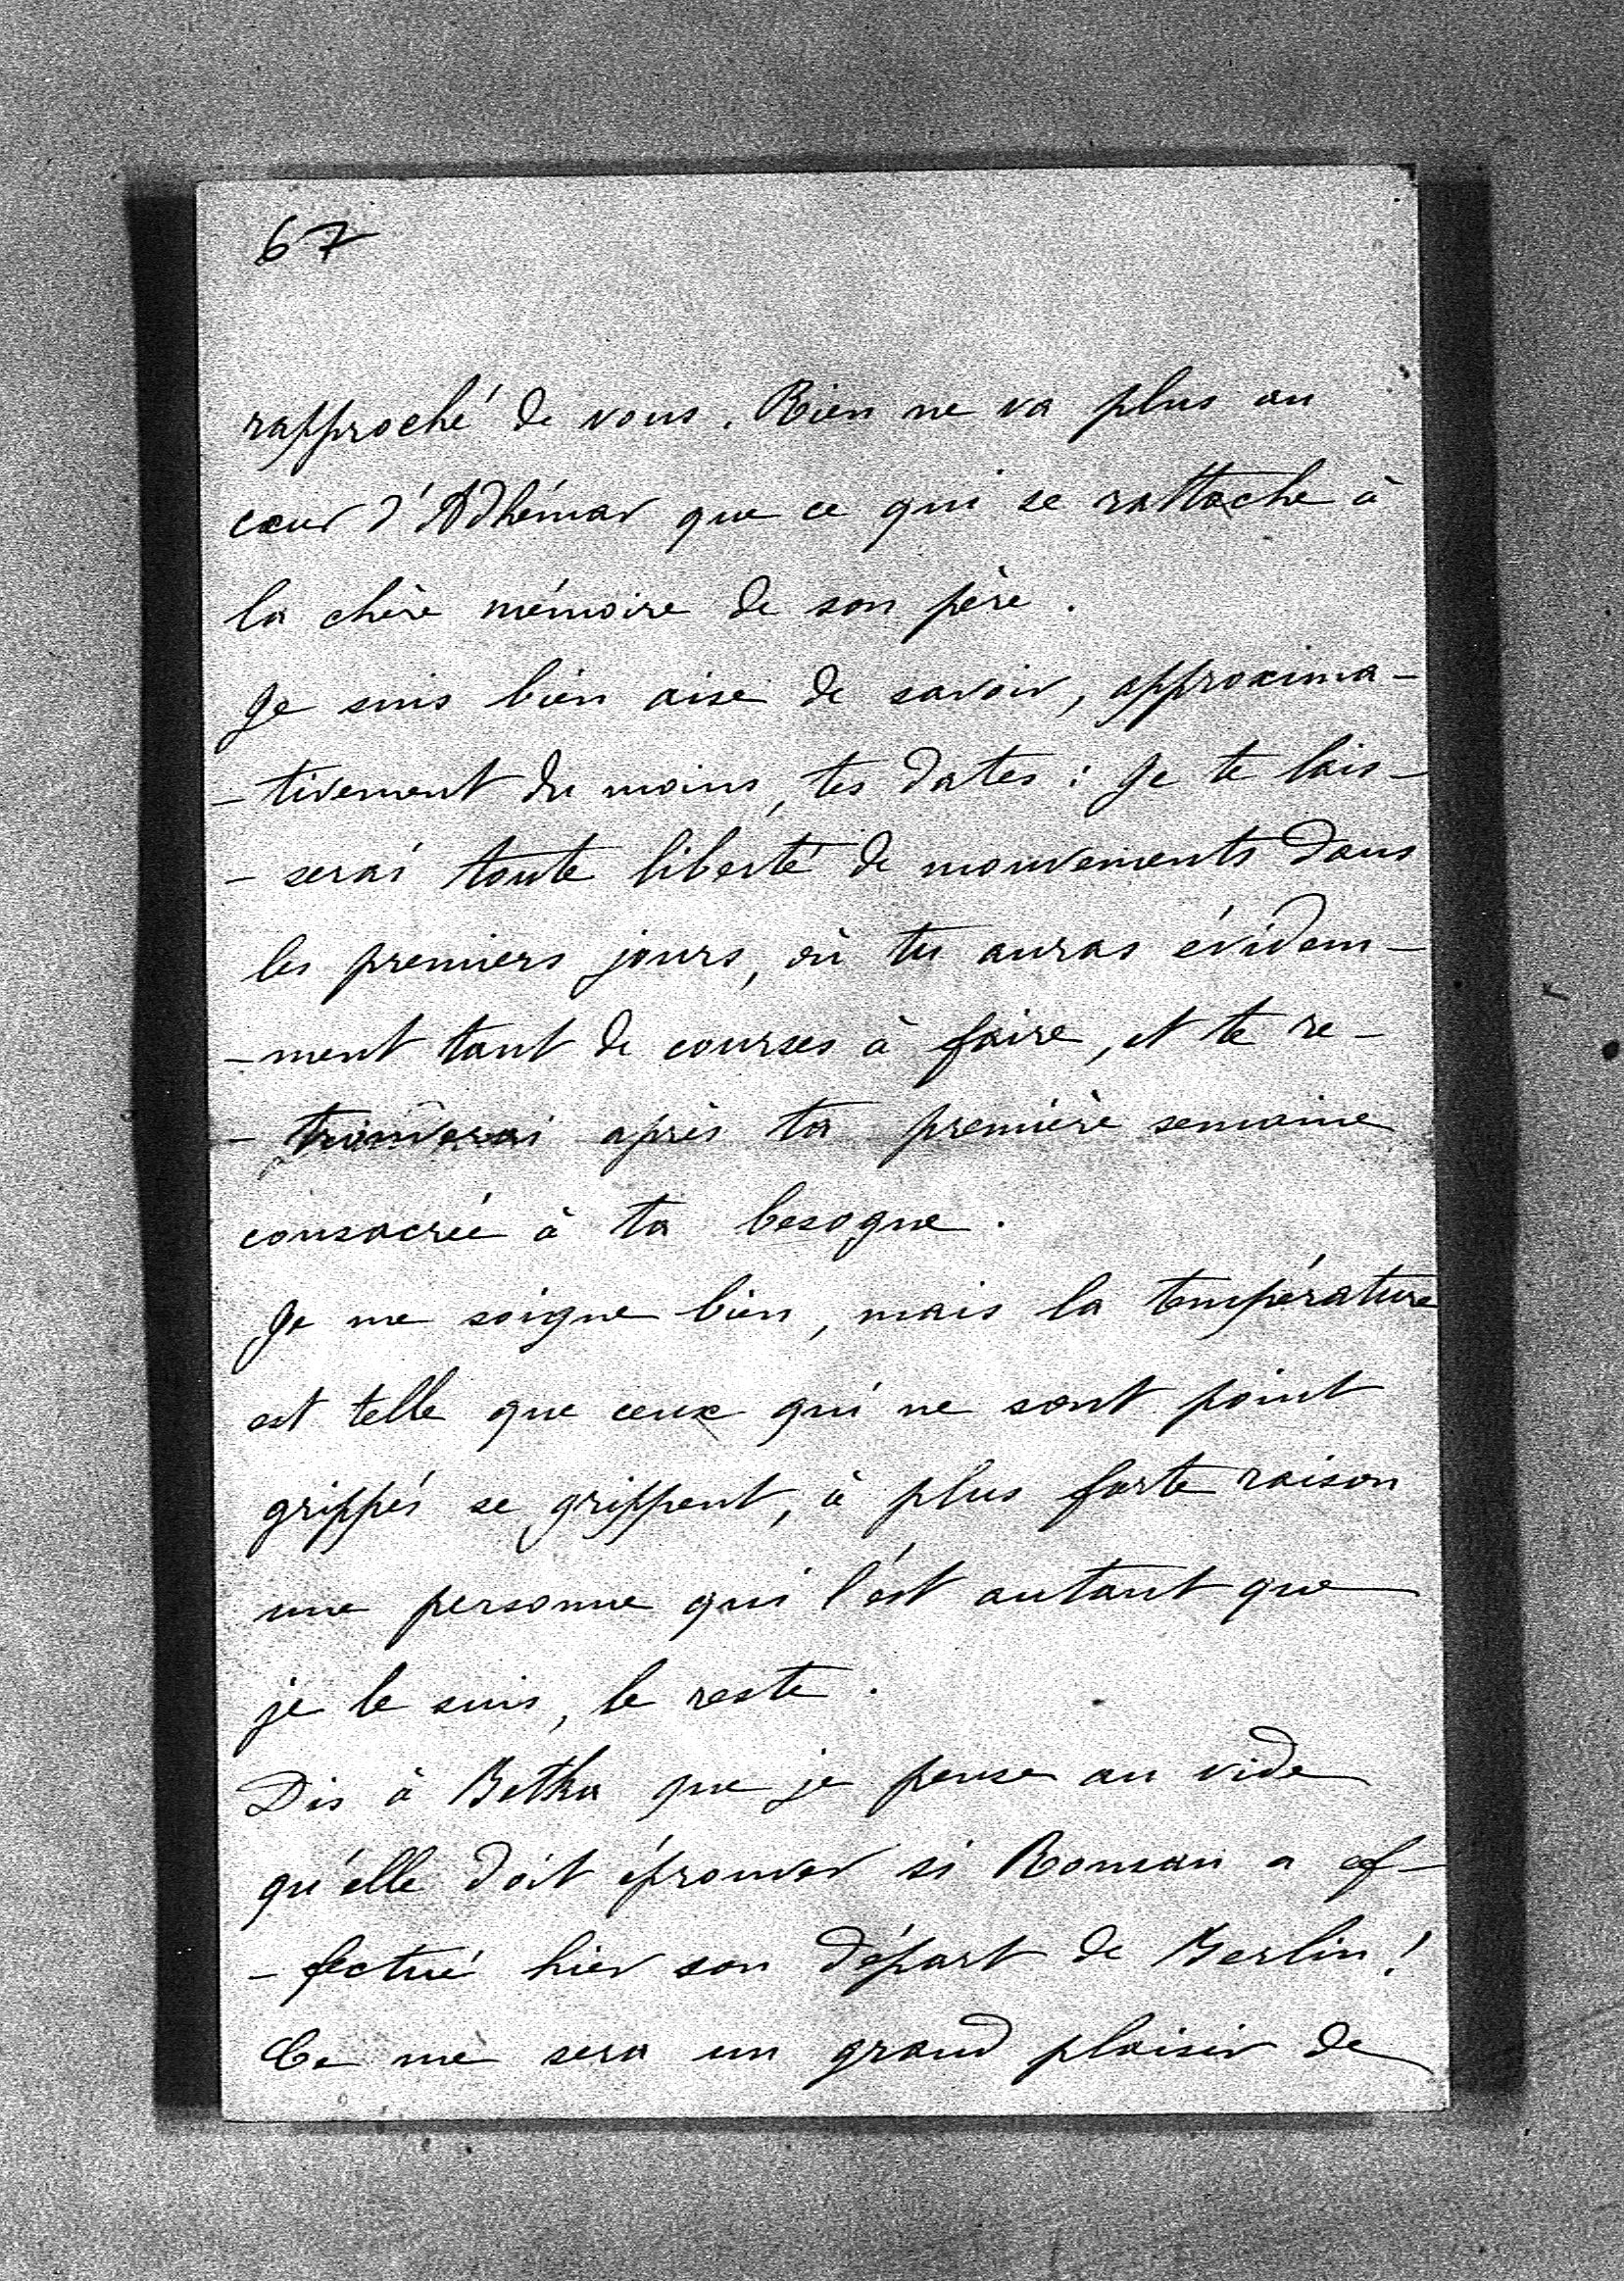 67
rapproché de vous. Rien ne va plus au
cœur d'Adhémar que ce qui se rattache à
la chère mémoire de son père.
Je suis bien aise de savoir, approxima-
-tivement du moins, tes dates : Je te lais-
-serai toute liberté de mouvements dans
les premiers jours, où tu auras évidem-
-ment tant de courses à faire, et te re-
-trouverai après ta première semaine
consacrée à ta besogne.
Je me soigne bien, mais la température
est telle que ceux qui ne sont point
grippés se grippent, à plus forte raison
une personne qui l'est autant que
je le suis, le reste.
Dis à Betka que je pense au vide
qu'elle doit éprouver si Roman a ef-
-fectué hier son départ de Berlin !
Ce me sera un grand plaisir de